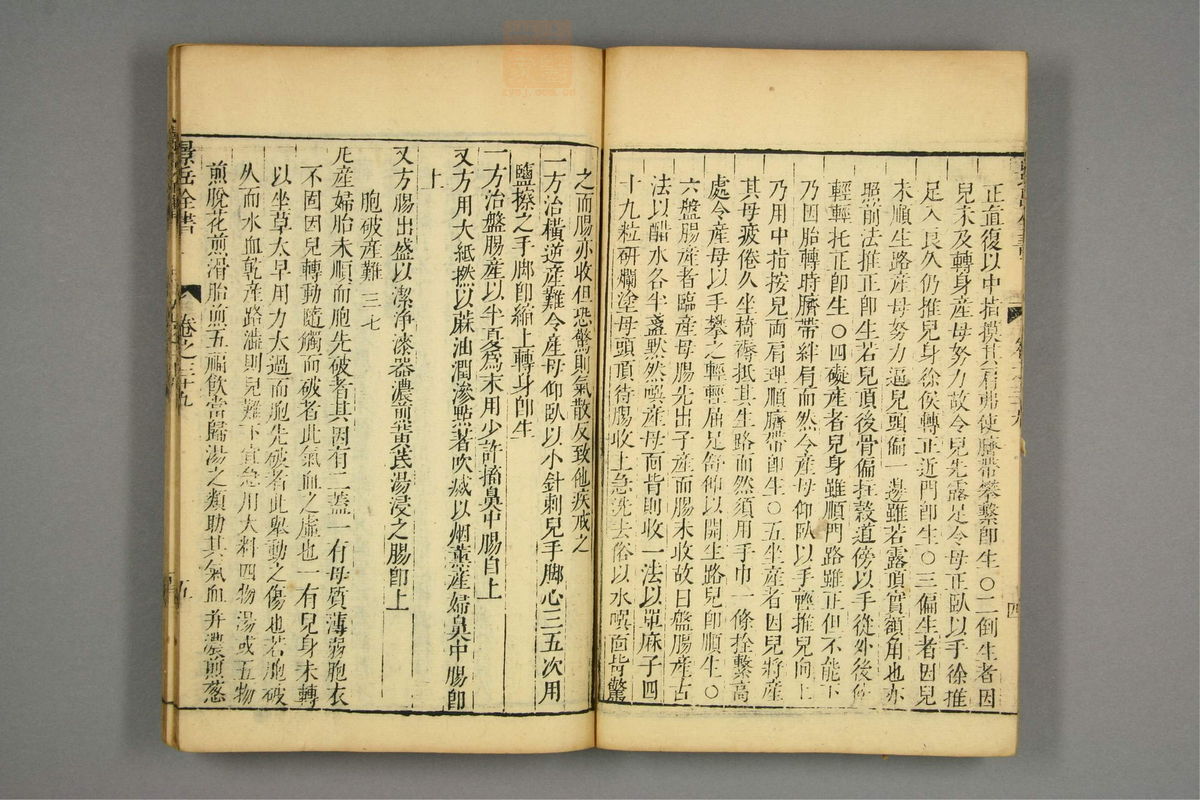 正道復以中指摸其肩弗使臍帶攀繫即生〇二倒生者因
兒未及轉身産母努力故令兒先露足令母正臥以手徐推
足入良久仍推兒身徐俟轉正近門即生〇三偏生者因兒
未順生路産母努力逼兒頭偏一邊雖若露頂實額角也亦
照前法推正即生若兒頂後骨偏拄穀道傍以手從外後傍
輕輕托正即生〇四礙産者兒身雖順門路雖正但不能下
乃因胎轉時臍帶絆肩而然令産母仰臥以手輕推兒向上
乃用中指按兒兩肩理順臍帶即生〇五坐産者因兒將産
其母疲倦久坐椅褥抵其生路而然須用手巾一條拴繫高
處令産母以手攀之輕輕屈足舒伸以開生路兒即順生〇
六盤腸産者臨産母腸先出子産而腸未收故曰盤腸産古
法以醋水各半盞默然噀産母面背則收一法以萆麻子四
十九粒研爛塗母頭頂待腸收上急洗去俗以水噀面背驚
四
之而腸亦收但恐驚則氣散反致他疾戒之
一方治橫逆産難令産母仰臥以小針刺兒手脚心三五次用
鹽擦之手脚即縮上轉身即生
一方治盤腸産以半夏爲末用少許搐鼻中腸自上
又方用大紙撚以蔴油潤滲點著吹滅以烟薰産婦鼻中腸即
上
又方腸出盛以潔淨漆器濃煎黃芪湯浸之腸即上
胞破産難 三七
凡産婦胎未順而胞先破者其因有二蓋一有母質薄弱胞衣
不固因兒轉動隨觸而破者此氣血之虛也一有兒身未轉
以坐草太早用力太過而胞先破者此舉動之傷也若胞破
久而水血乾産路澁則兒難下宜急用大料四物湯或五物
煎脫花煎滑胎煎五福飲當歸湯之類助其氣血并濃煎葱
景岳全書
卷之三十九
五